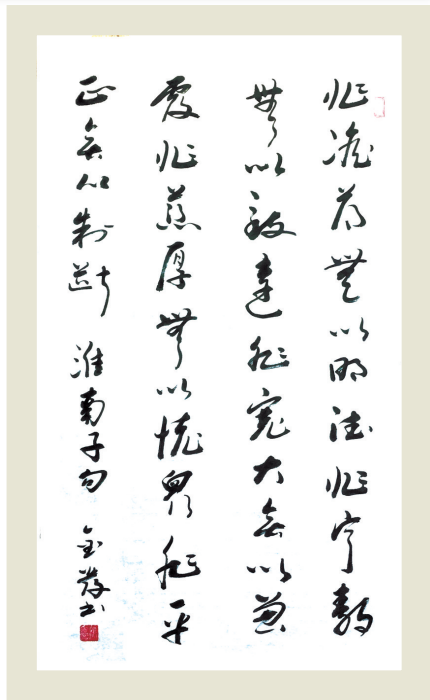 非澹薄無以明德非宁靜
無以致遠非寬大無以兼
覆非慈厚無以懷眾非平
正無以制斷 淮南子句 金發书